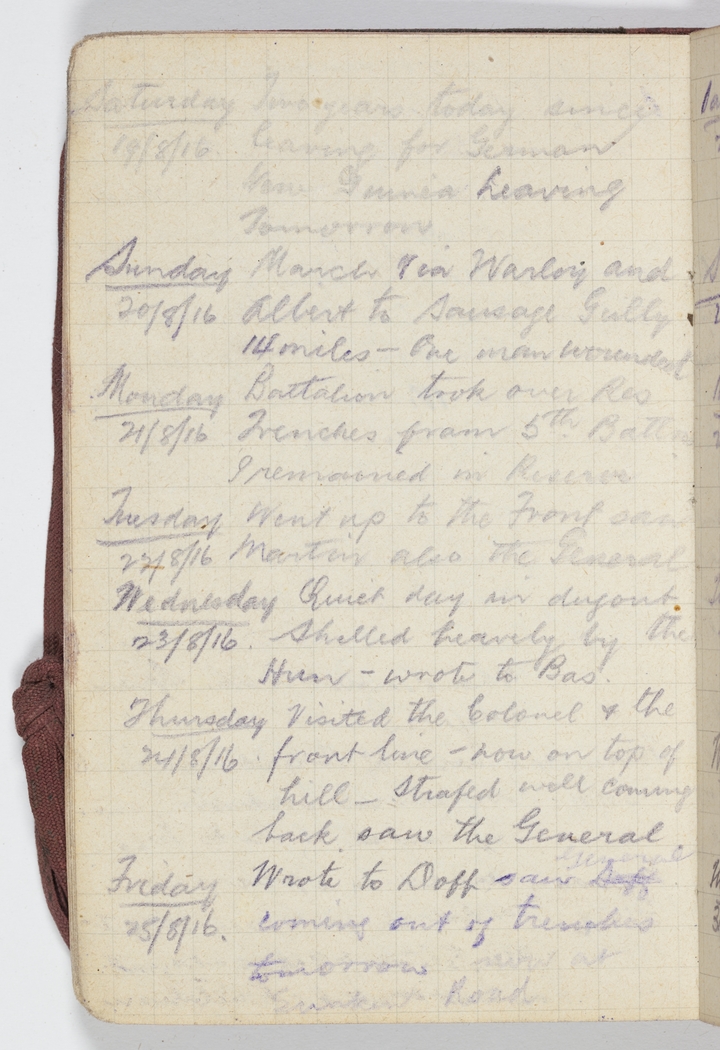 Saturday Two years today since
19/8/16. leaving for German
New Guinea Leaving
Tomorrow
Sunday March via Warloy and
20/8/16 Albert to Sausage Gully
14 miles - One man wounded
Monday Battalion took over Res
21/8/16 Trenches from 5th Battn
I remained in Reserve
Tuesday Went up to the Front saw
22/8/16 Martin also the General
Wednesday Quiet day in dugout
23/8/16. Shelled heavely by the
Hun - wrote to Bas.
Thursday Visited the Colonel & the
24/8/16. front line - now on top of
hill - Strafed well coming
back saw the General
Friday Wrote to Doff saw General
25/8/16. coming out of trenches
tomorrow at
Road